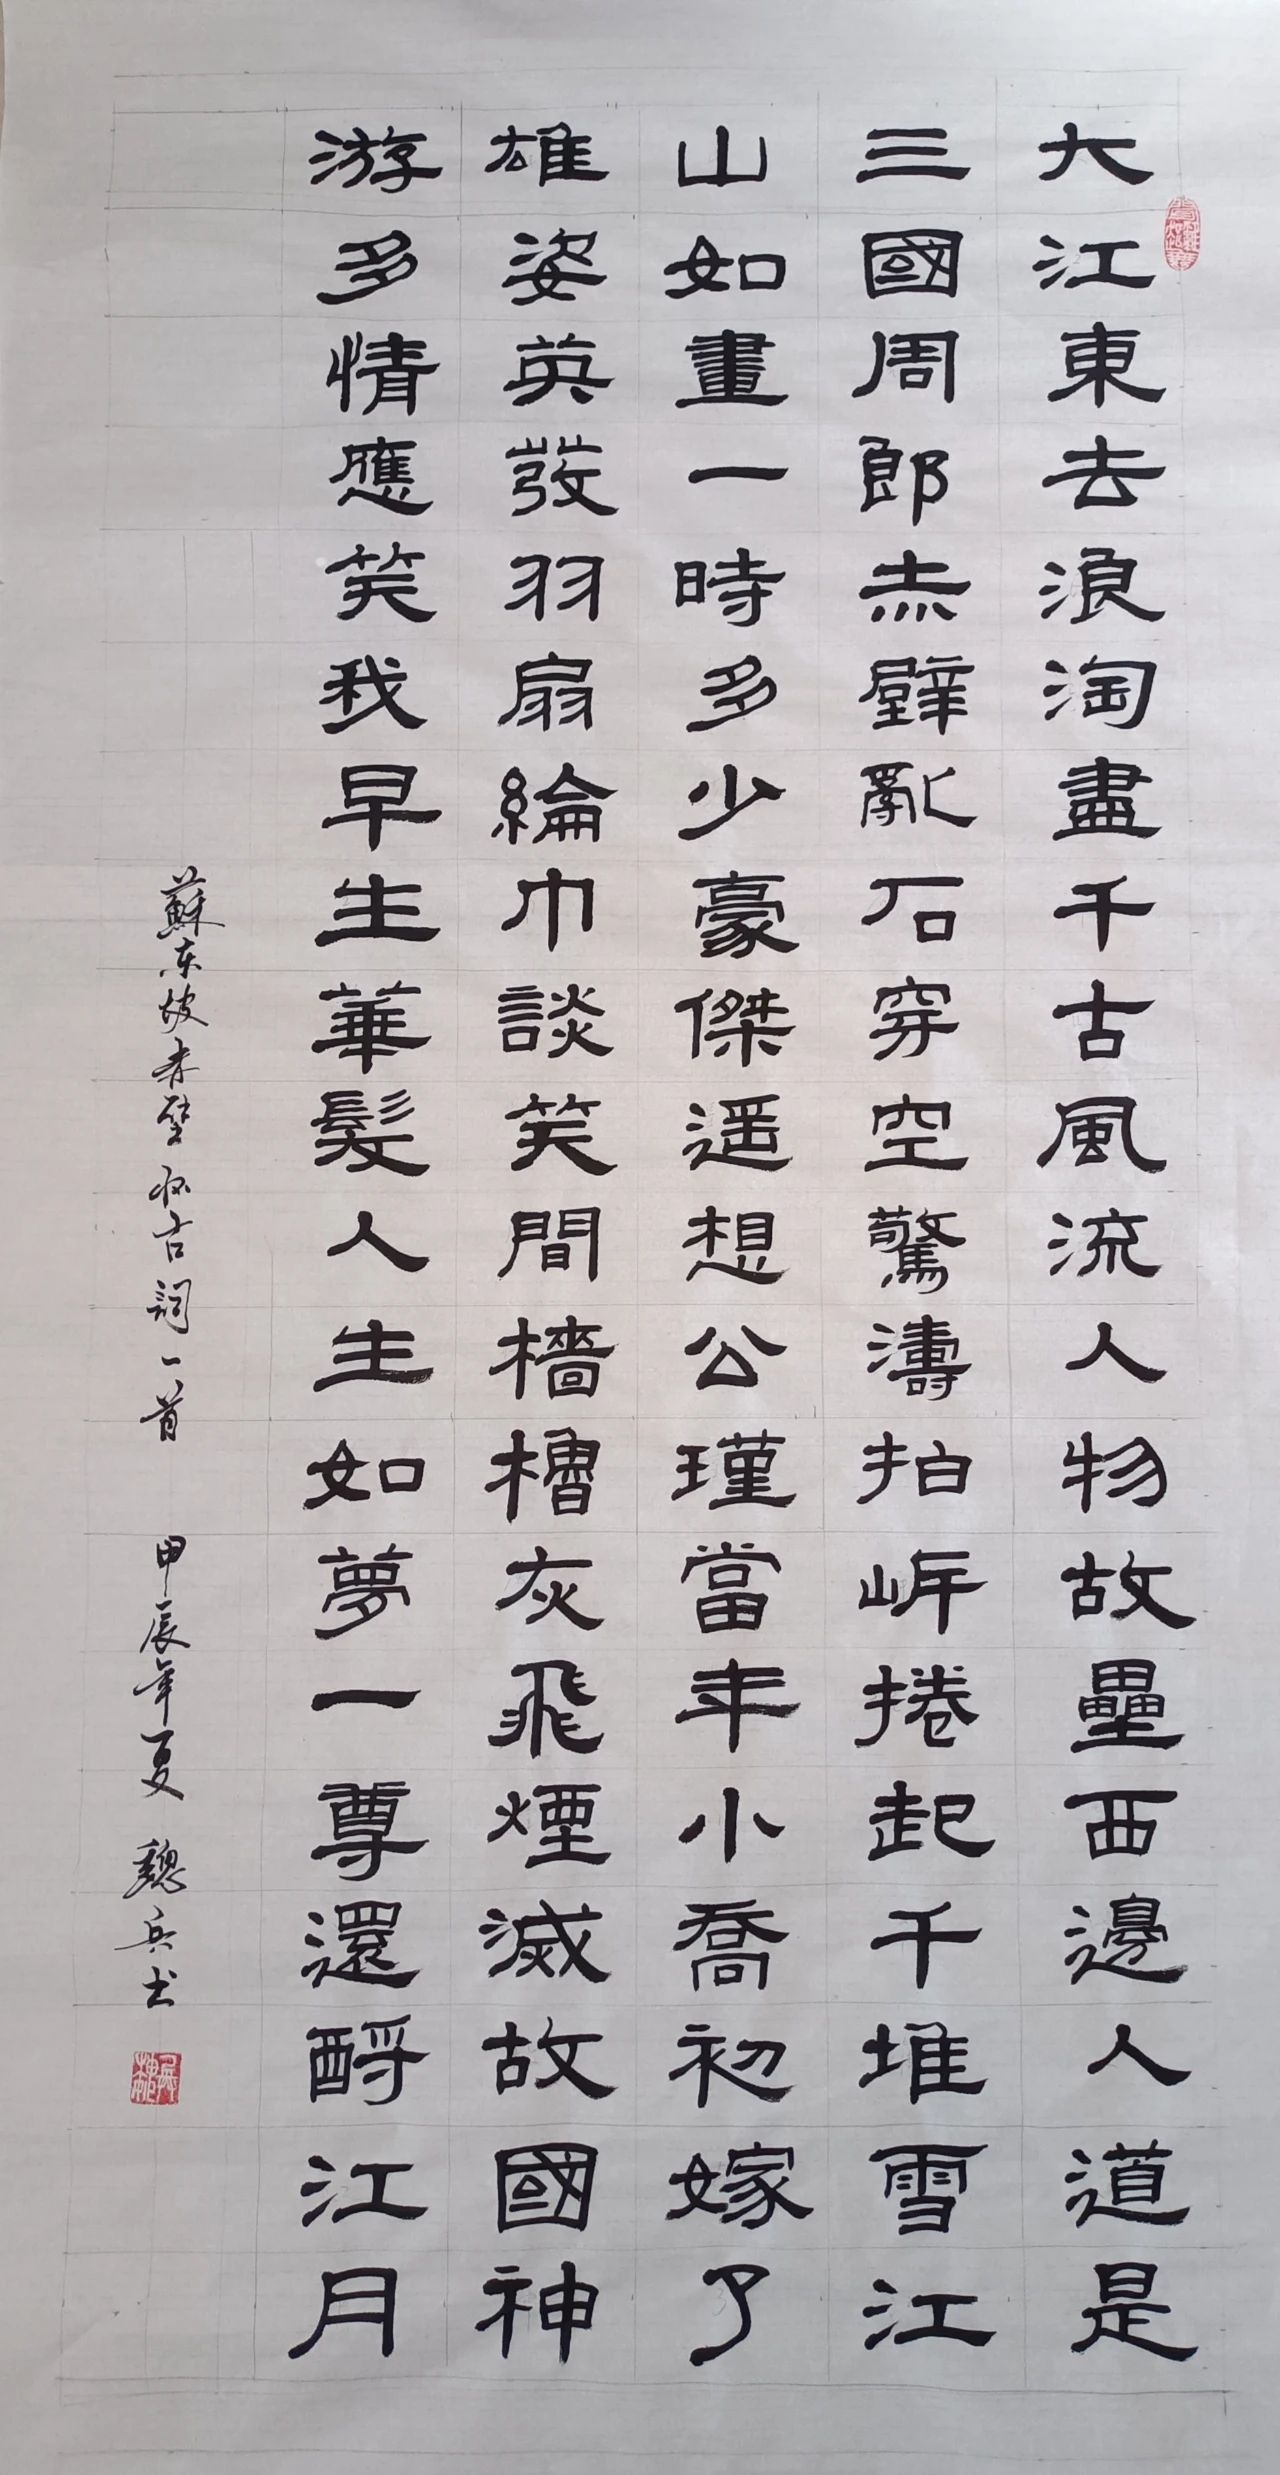 大江東去浪淘盡千古風流人物故壘西邊人道是
三國周郎赤壁亂石穿空驚濤拍岸捲起千堆雪江
山如畫一時多少豪傑遥想公瑾當年小喬初嫁了
雄姿英發羽扇綸巾談笑間檣櫓灰飛煙滅故國神
游多情應笑我早生華髮人生如夢一尊還酹江月
蘇东坡赤壁怀古詞一首 甲辰年夏 魏兵书